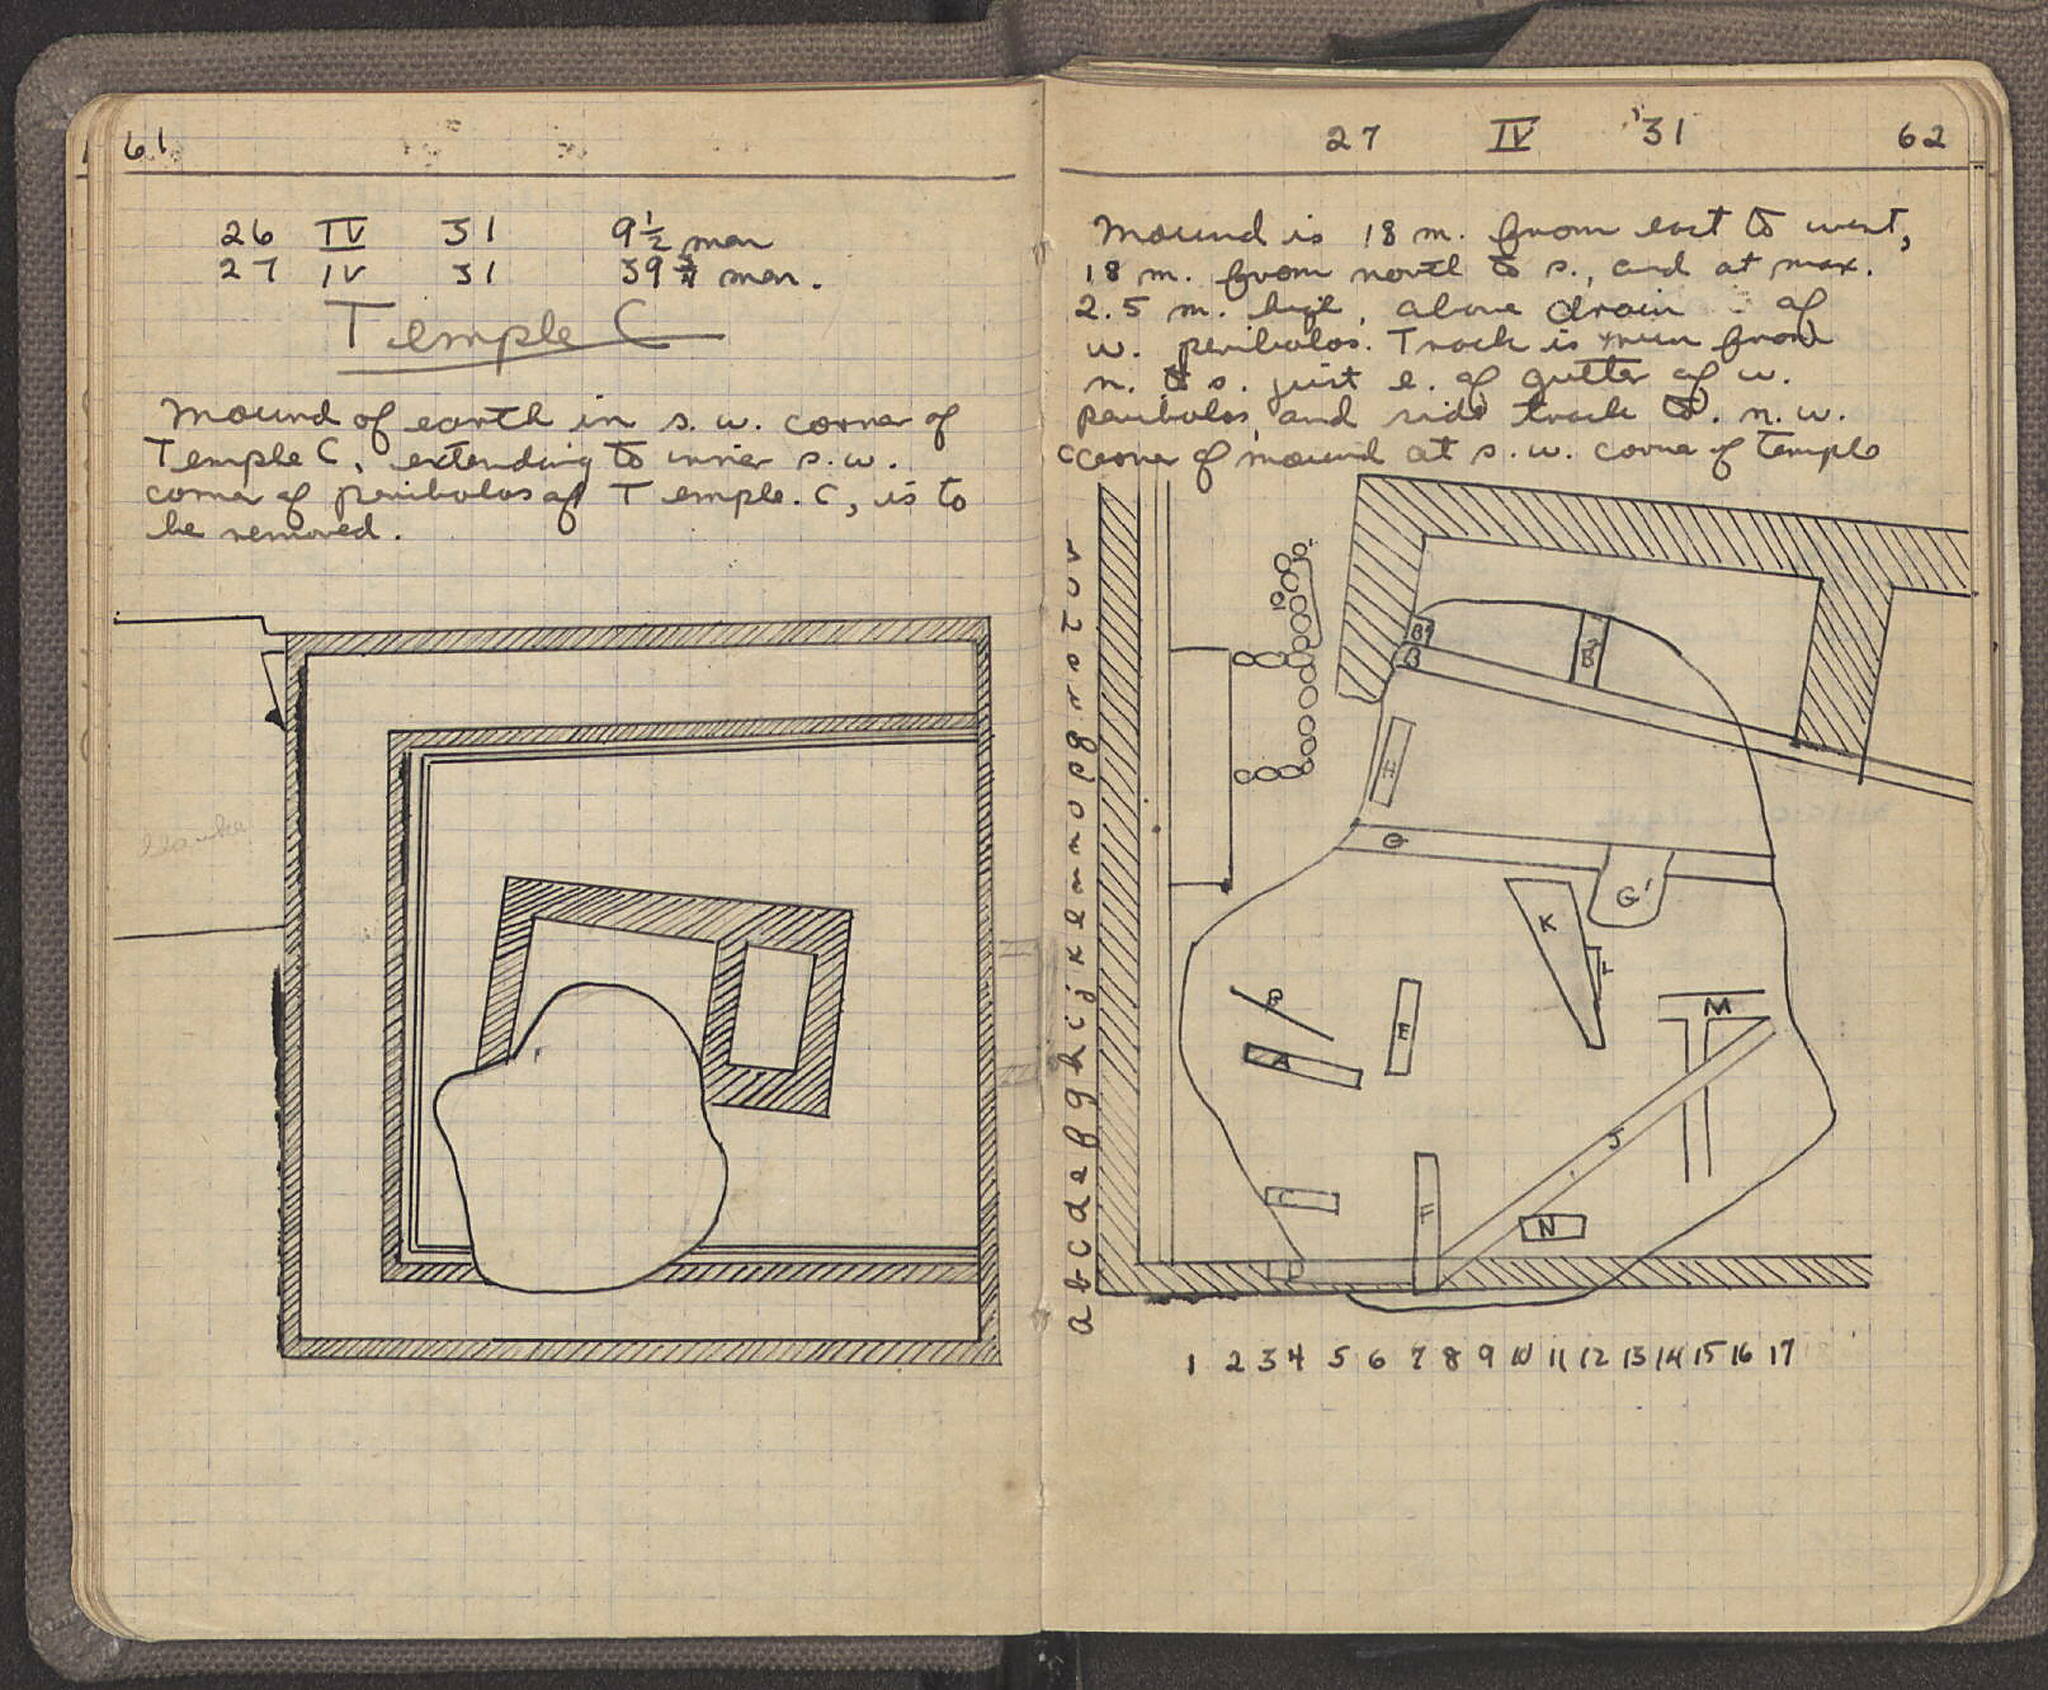 61
26 IV 31 9½ men
27 IV 31 39 men.
Temple C
Mound of earth in s. w. corner of
Temple C, extending to inner s. w.
corner of peribolos of Temple. C, is to
be removed.
27 IV '31 62
Mound is 18 m. from east to west,
18 m. from north to s., and at max.
2.5 m. high, above drain of
w. peribolos. Track is run from
n. to s. just e. of gutter of w.
peribolos, and side track to n. w.
corner of mound at s. w. corner of temple
a b c d e f g h i j k l m n o p q r s t u v
B'
B
B
H
G
G'
K
L
M
P
A
E
J
C
F
N
D
1 2 3 4 5 6 7 8 9 10 11 12 13 14 15 16 17